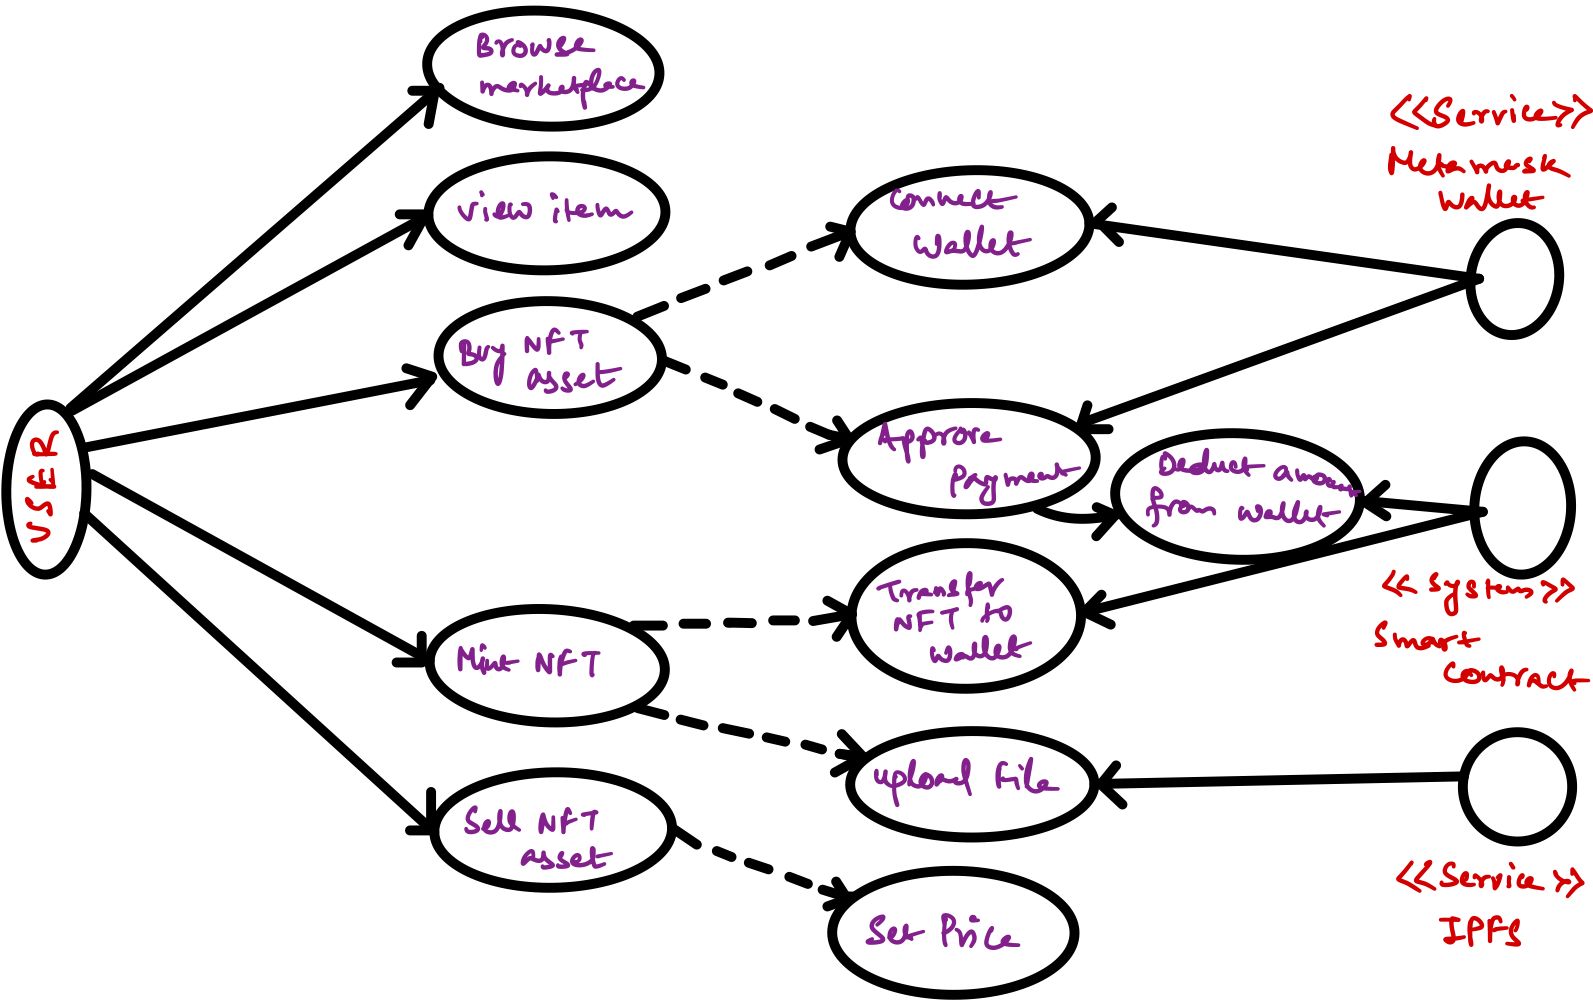 Browse
marketplace
view item
Buy NFT
asset
USER
Mint NFT
Sell NFT
asset
Connect
Wallet
Approve
Payment
Deduct amount
from wallet
Transfer
NFT to
wallet
upload File
Set Price
<<Service>>
Metamask
wallet
<<System>>
Smart
Contract
<<Service>>
IPFS